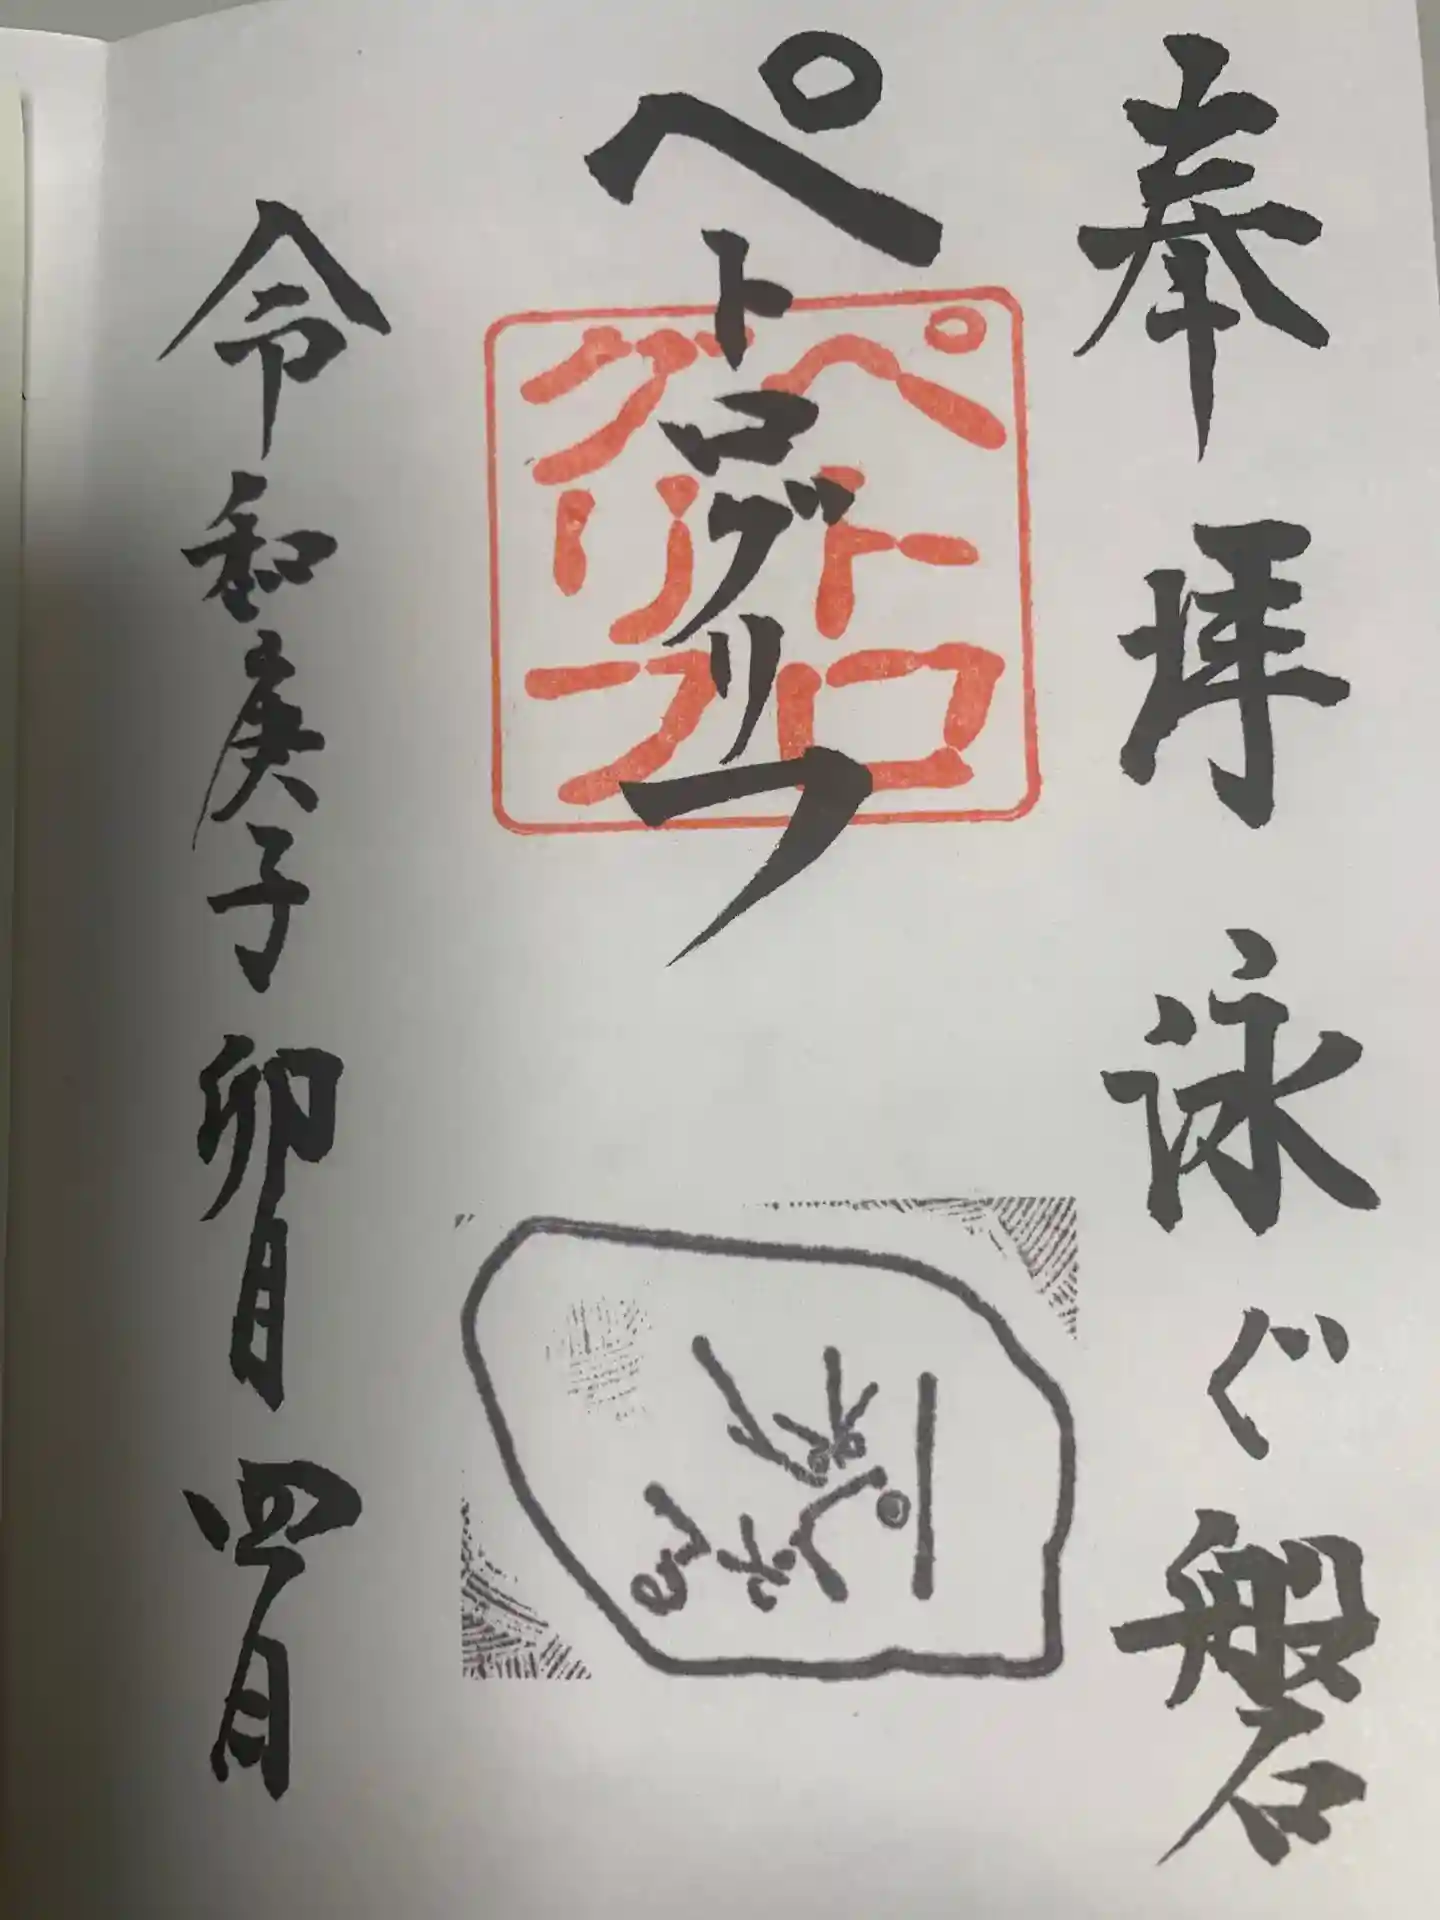 奉拝 泳ぐ磐
ペトログリフ
ペトロ
グリフ
令和庚子 卯月 四月